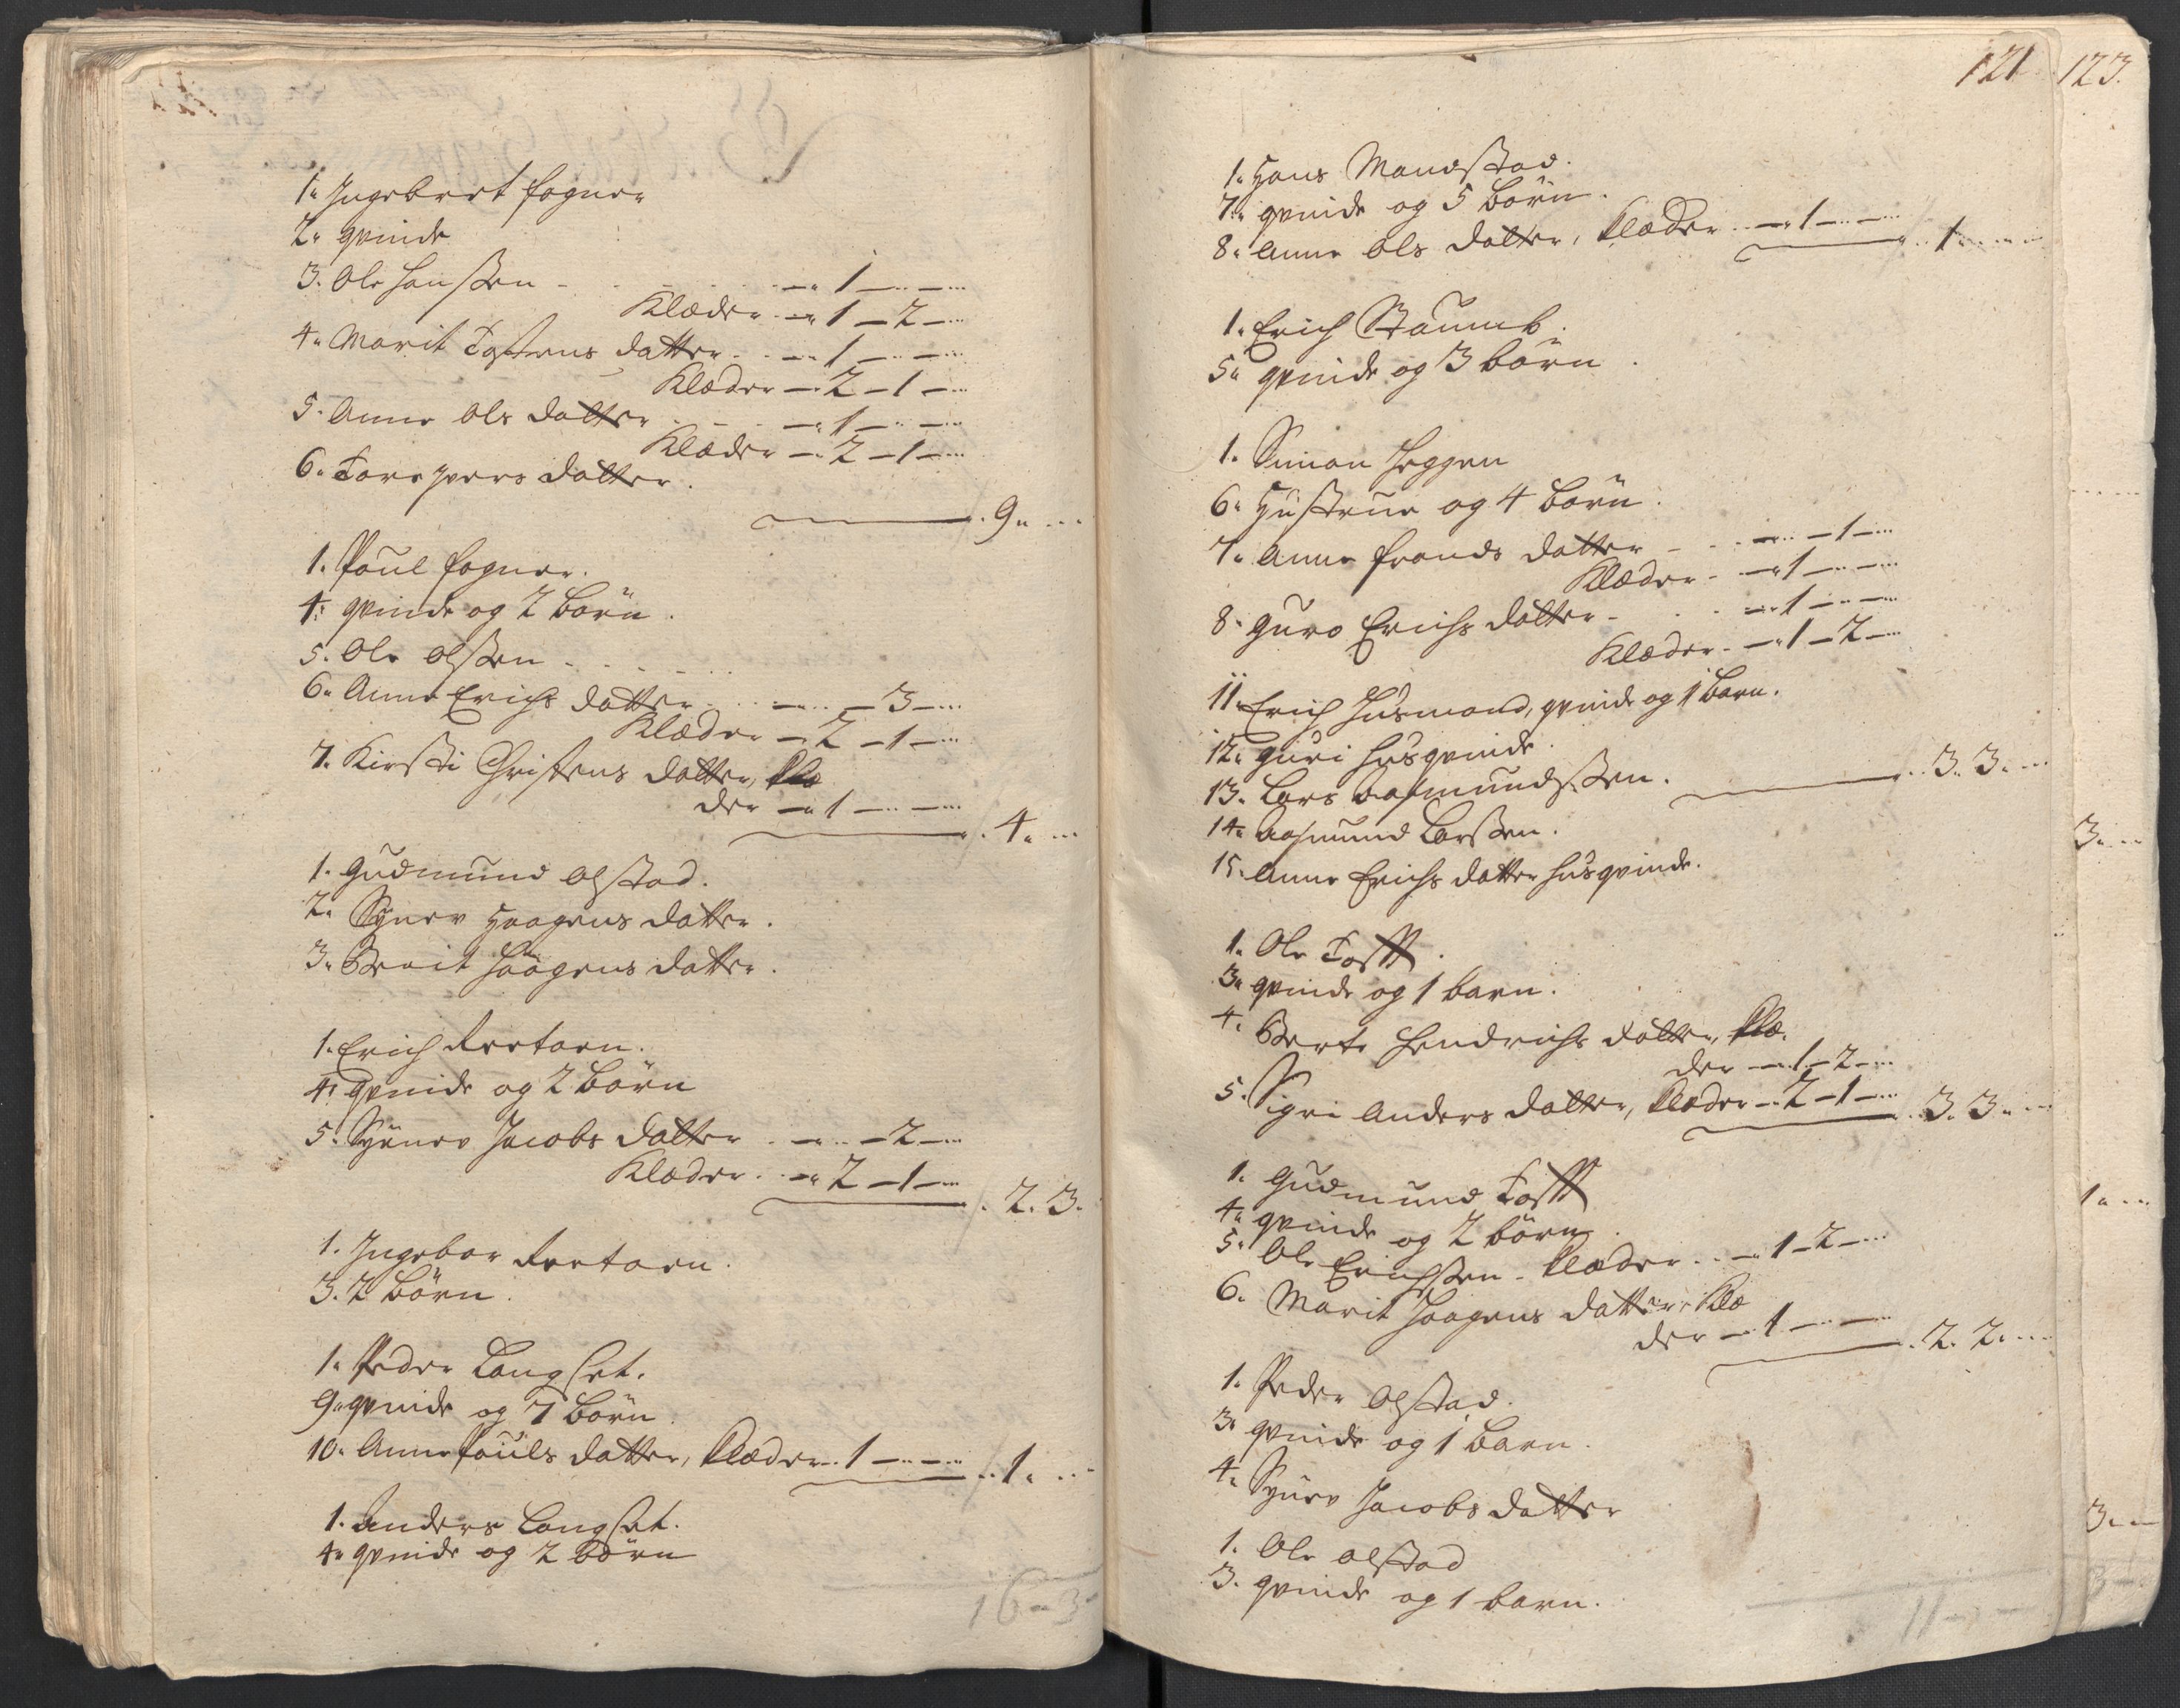 1. Ingebret Fogner
2. qvinde
3. Ole Hanssen - - - 1 - -
Klæder - 1 - 2 -
4. Marit Tostens datter - - 1 - -
Klæder - 2 - 1 -
5. Anne Ols datter - - 1 - -
Klæder - 2 - 1 -
6. Tore Ivers datter.
9.
1. Poul Fogner.
4. qvinde og 2 börn.
5. Ole Olssen - - -
6. Anne Erichs datter - - 3 -
Klæder - 2 - 1 -
7. Kirsti Christens datter, klæ
der - 1 - -
4.
1. Gudmund Olstad.
2. Synev Haagens datter.
3. Berit Haagens datter.
1. Erich
4. qvinde og 2 börn
5. Synev Jacobs datter - - 2 -
Klæder - 2 - 1 -
2. 3.
1. Ingebor
3. 2 börn.
1. Peder Langset.
9. qvinde og 7 börn.
10. Anne Pouls datter, klæder - 1 - - 1.
1. Anders Langset.
4. qvinde og 2 börn
16 - 3 -
121
123.
1. Hans Mandstad.
7. qvinde og 5 börn.
8. Anne Ols datter, klæder - 1 - - 1.
1. Erich Staumb.
5. qvinde og 3 börn.
1. Simon Heggen
6. Hustrue og 4 börn.
7. Anne Frands datter - - 1 -
Klæder - 1 - -
8. Guro Erichs datter - - 1 - -
Klæder - 1 - 2 -
11. Erich Husmand, qvinde og 1 barn.
12. Guri husqvinde.
13. Lars Aasmundssen. 3. 3.
14. Aasmund Larssen.
15. Anne Erichs datter husqvinde.
3.
1. Ole Tofft.
3. qvinde og 1 barn.
4. Berte Hendrichs datter, klæ-
der - 1 - 2 -
5. Sigri Anders datter, klæder - 2 - 1 - 3. 3.
1. Gudmund Tofft
4. qvinde og 2 börn.
5. Ole Erichssen - klæder - 1 - 2 -
6. Marit Haagens datter, klæ
der - 1 - -
2. 2.
1.
1. Peder Olstad.
3. qvinde og 1 barn.
4. Synev Jacobs datter
1. Ole Olstad
3. qvinde og 1 barn.
3.